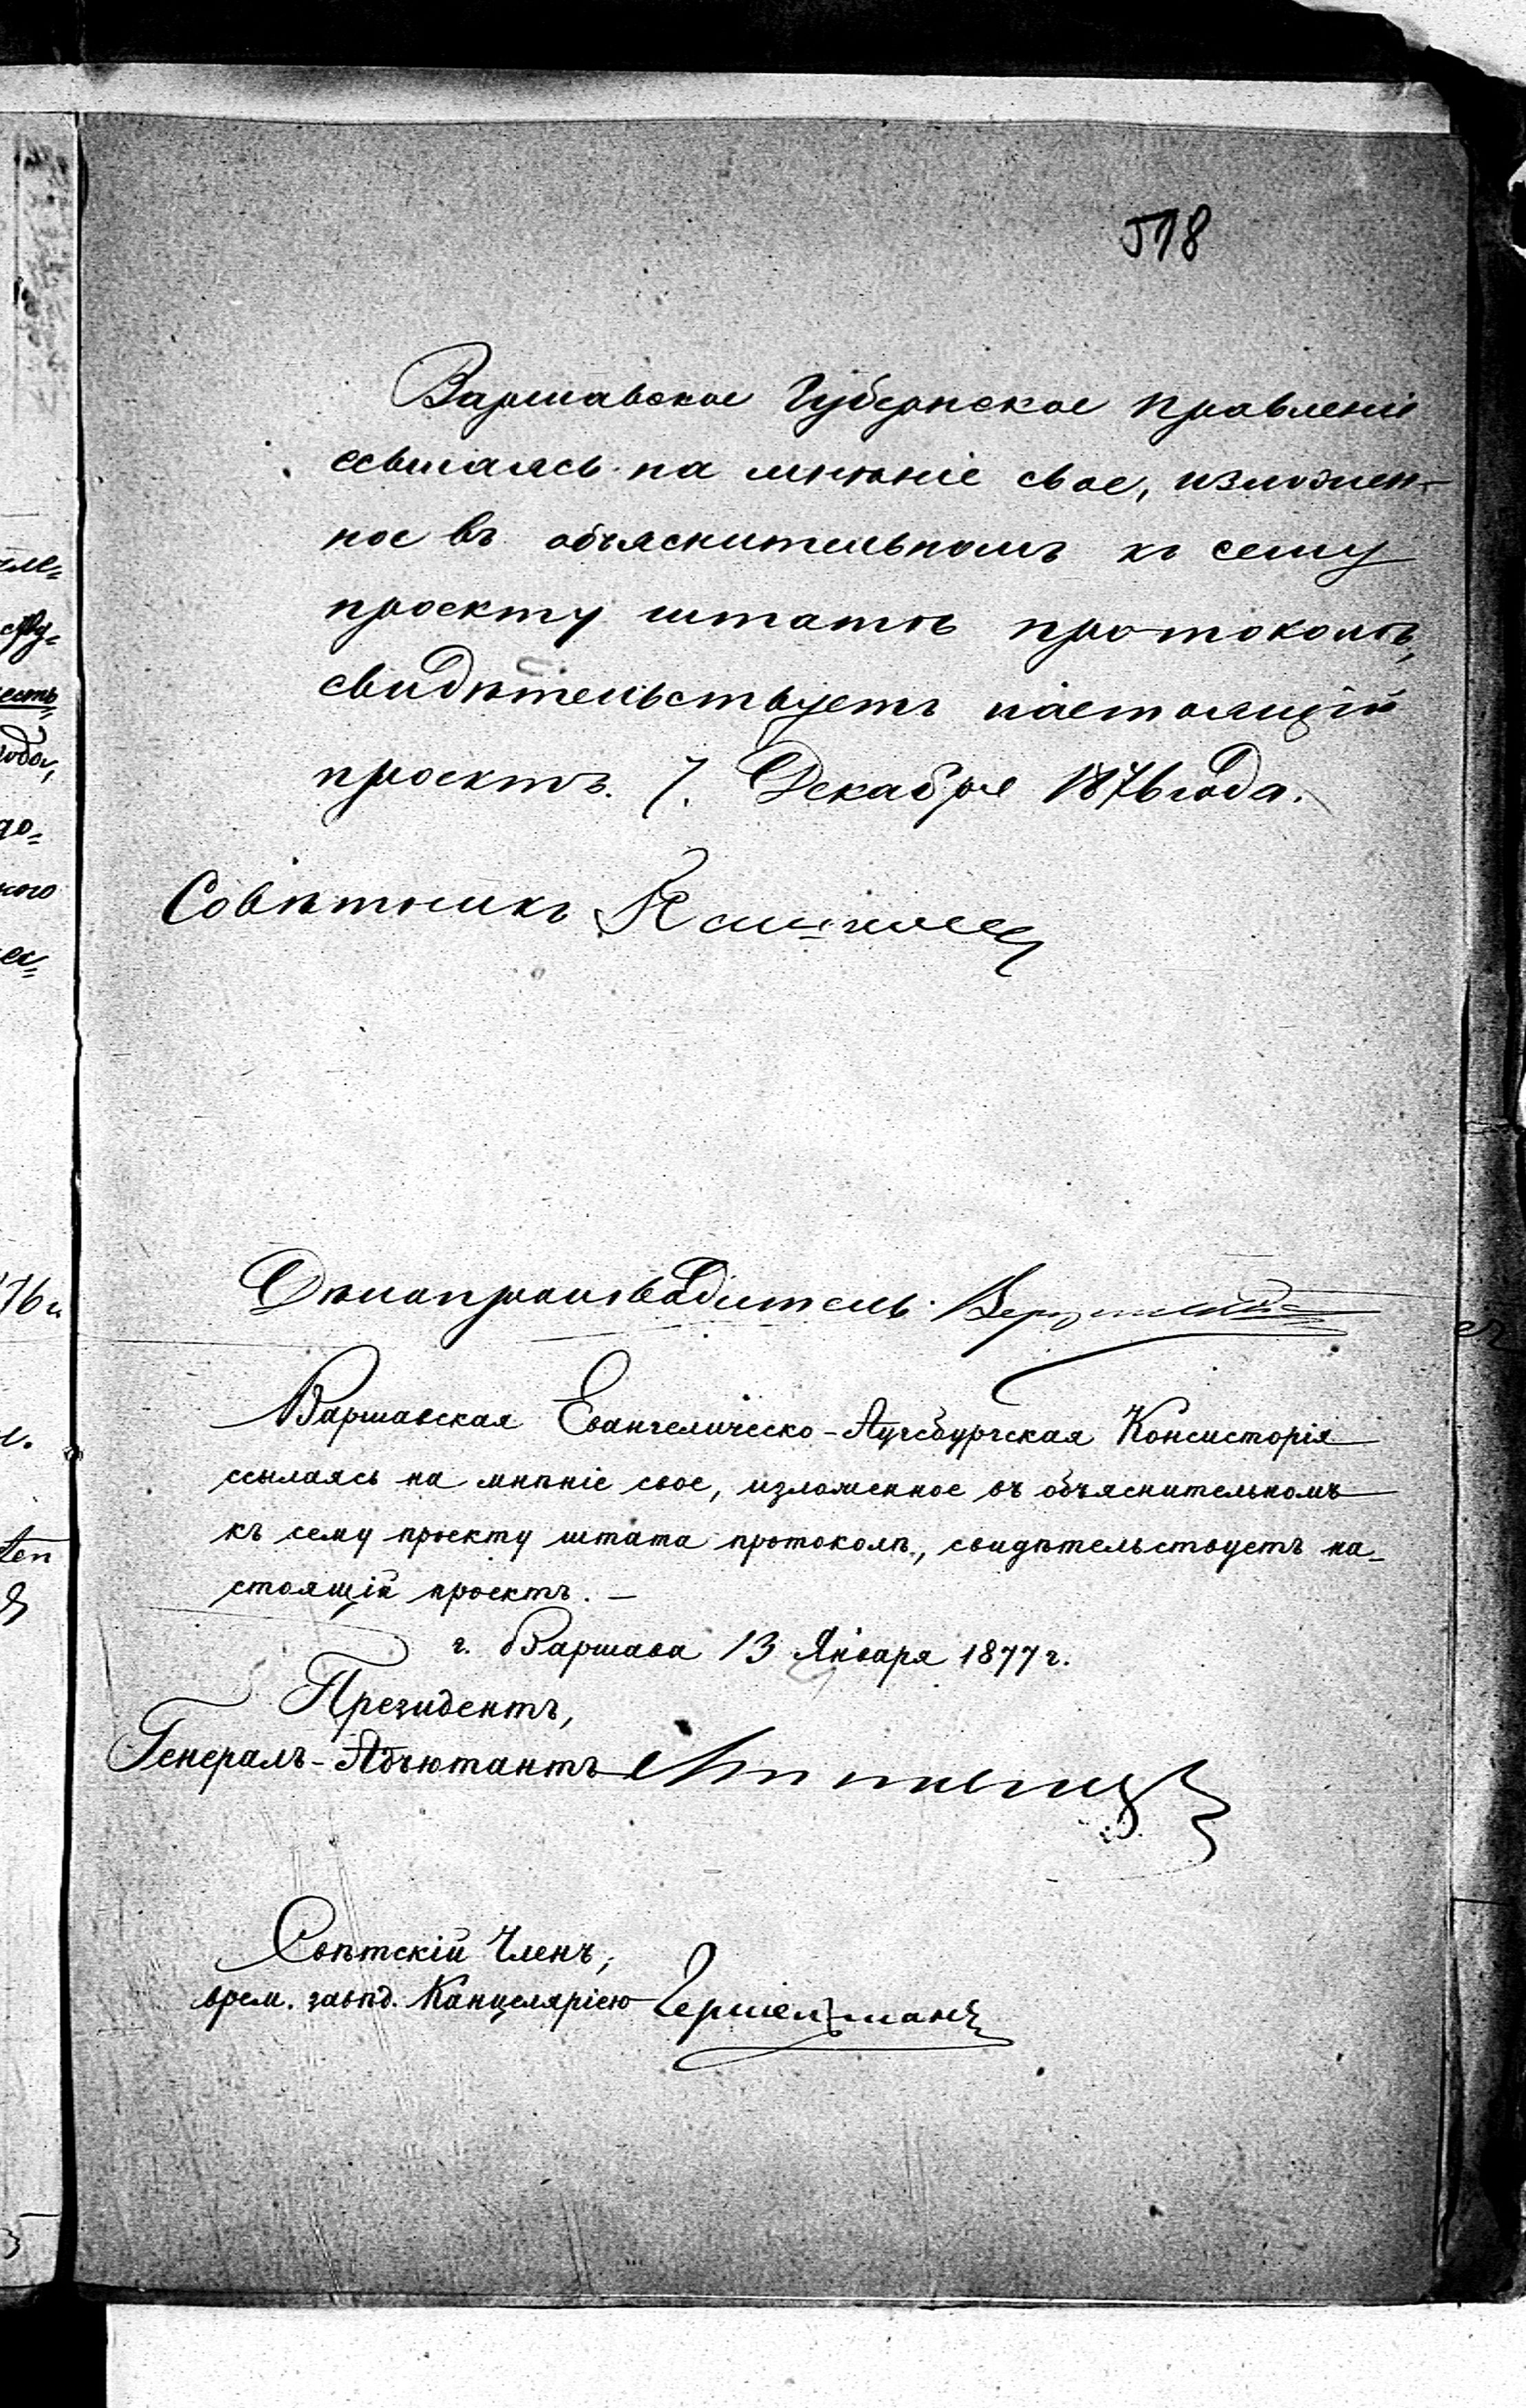 518
Варшавское Губернское правленіе
ссылаясь на мнѣніе свое, изложен-
ное въ объяснительномъ къ сему
проекту штатовъ протоколѣ,
свидѣтельствуетъ настоящій
проектъ. 7. Декабря 1876 года.
Совѣтникъ
Дѣлопроизводитель
Варшавская Евангелическо-Аугсбургская Консисторія
ссылаясь на мнѣніе свое, изложенное въ объяснительномъ
къ сему проекту штата протоколѣ, свидѣтельствуетъ на-
стоящій проектъ. —
г. Варшава 13 Января 1877 г.
Президентъ,
Генералъ-Адъютантъ
Свѣтскій Членъ,
врем. завѣд. Канцеляріею Гершельманъ